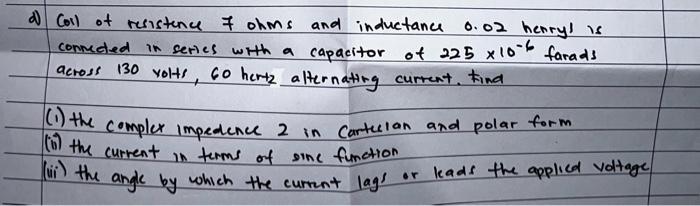 d) Coil of resistance 7 ohms and inductance 0.02 henrys is
connected in series with a capacitor of 225 x10⁻⁶ farads
across 130 volts, 60 hertz alternating current. Find
(i) the complex impedence Z in Cartesian and polar form
(ii) the current in terms of sine function
(iii) the angle by which the current lags or leads the applied voltage